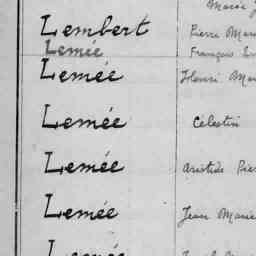 Marie J
Lembert Pierre Mari
Lemée François
Lemée Henri Mar
Lemée Célestin
Lemée Aristide Pier
Lemée Jean Marie
Lemée